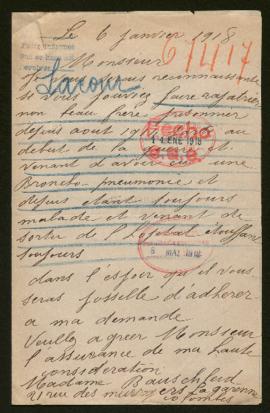 Le 6 janvier 1918
61417
Monsieur
Lacour
reconnaissante
si vous pouviez faire rapatrier
mon beau frère prisonnier
depuis aout 191 au
Hecho
14 ENE 1918
debut de la guerre et
venant d'avoir eu une
Broncho pneumonie et
depuis etant toujours
malade et venant de
sortir de l'hopital etouffant
toujours
dans l'espoir qu'il vous
seras possible d'adherer
a ma demande
Veuillez agreer Monsieur
l'assurance de ma haute
consideration
Madame
21 rue des la garenne
Colombes